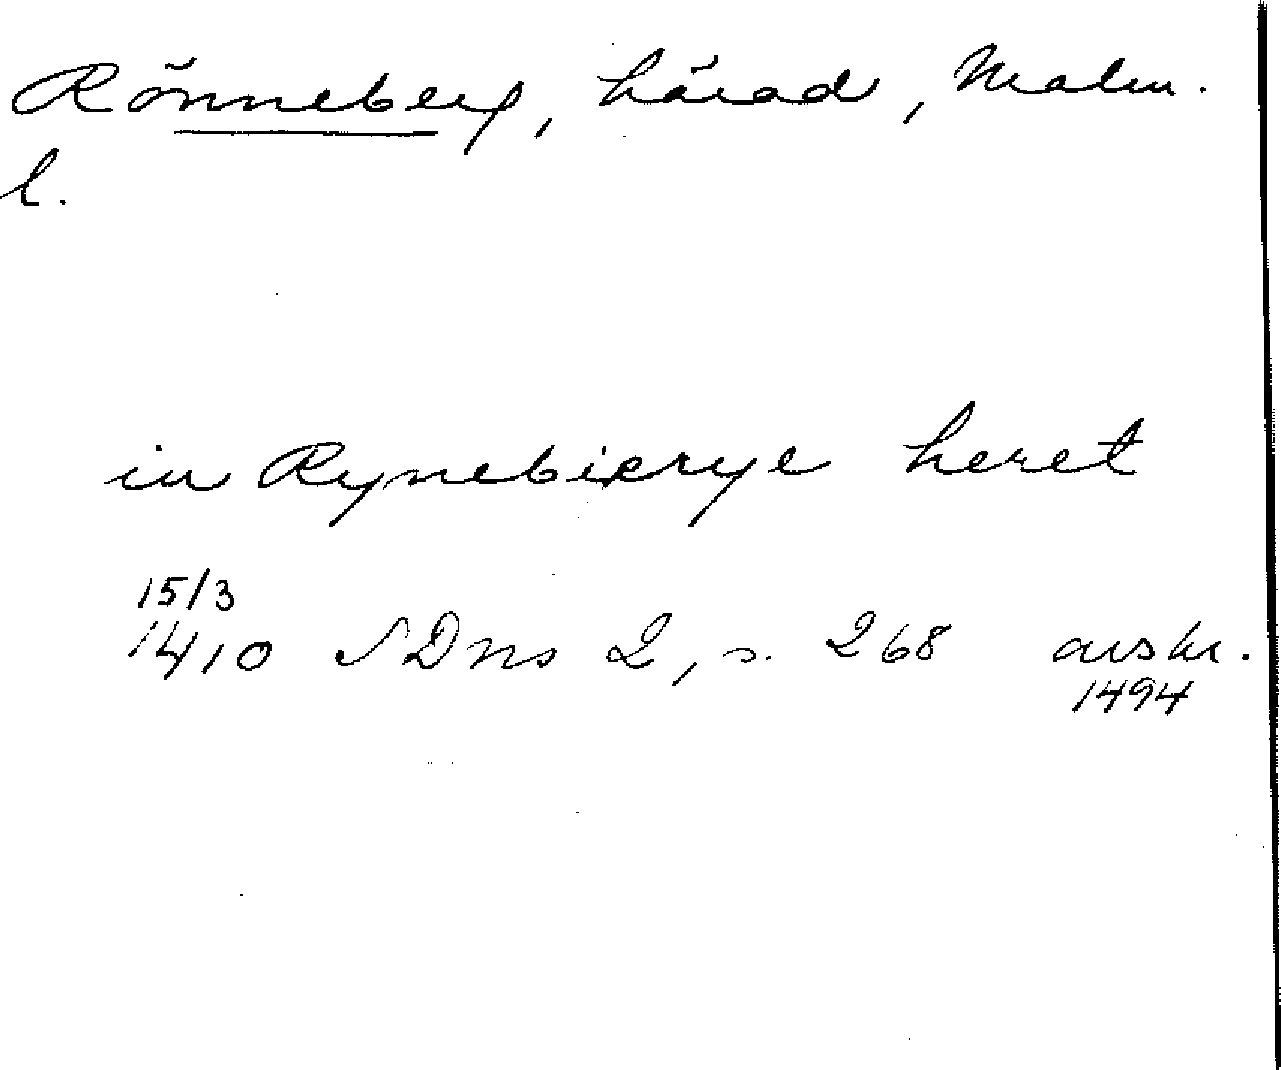 Rönneberg, härad, Malm.
l.
in Rynebierge heret
15/3
1410 SDns 2, s. 268 avskr.
1494